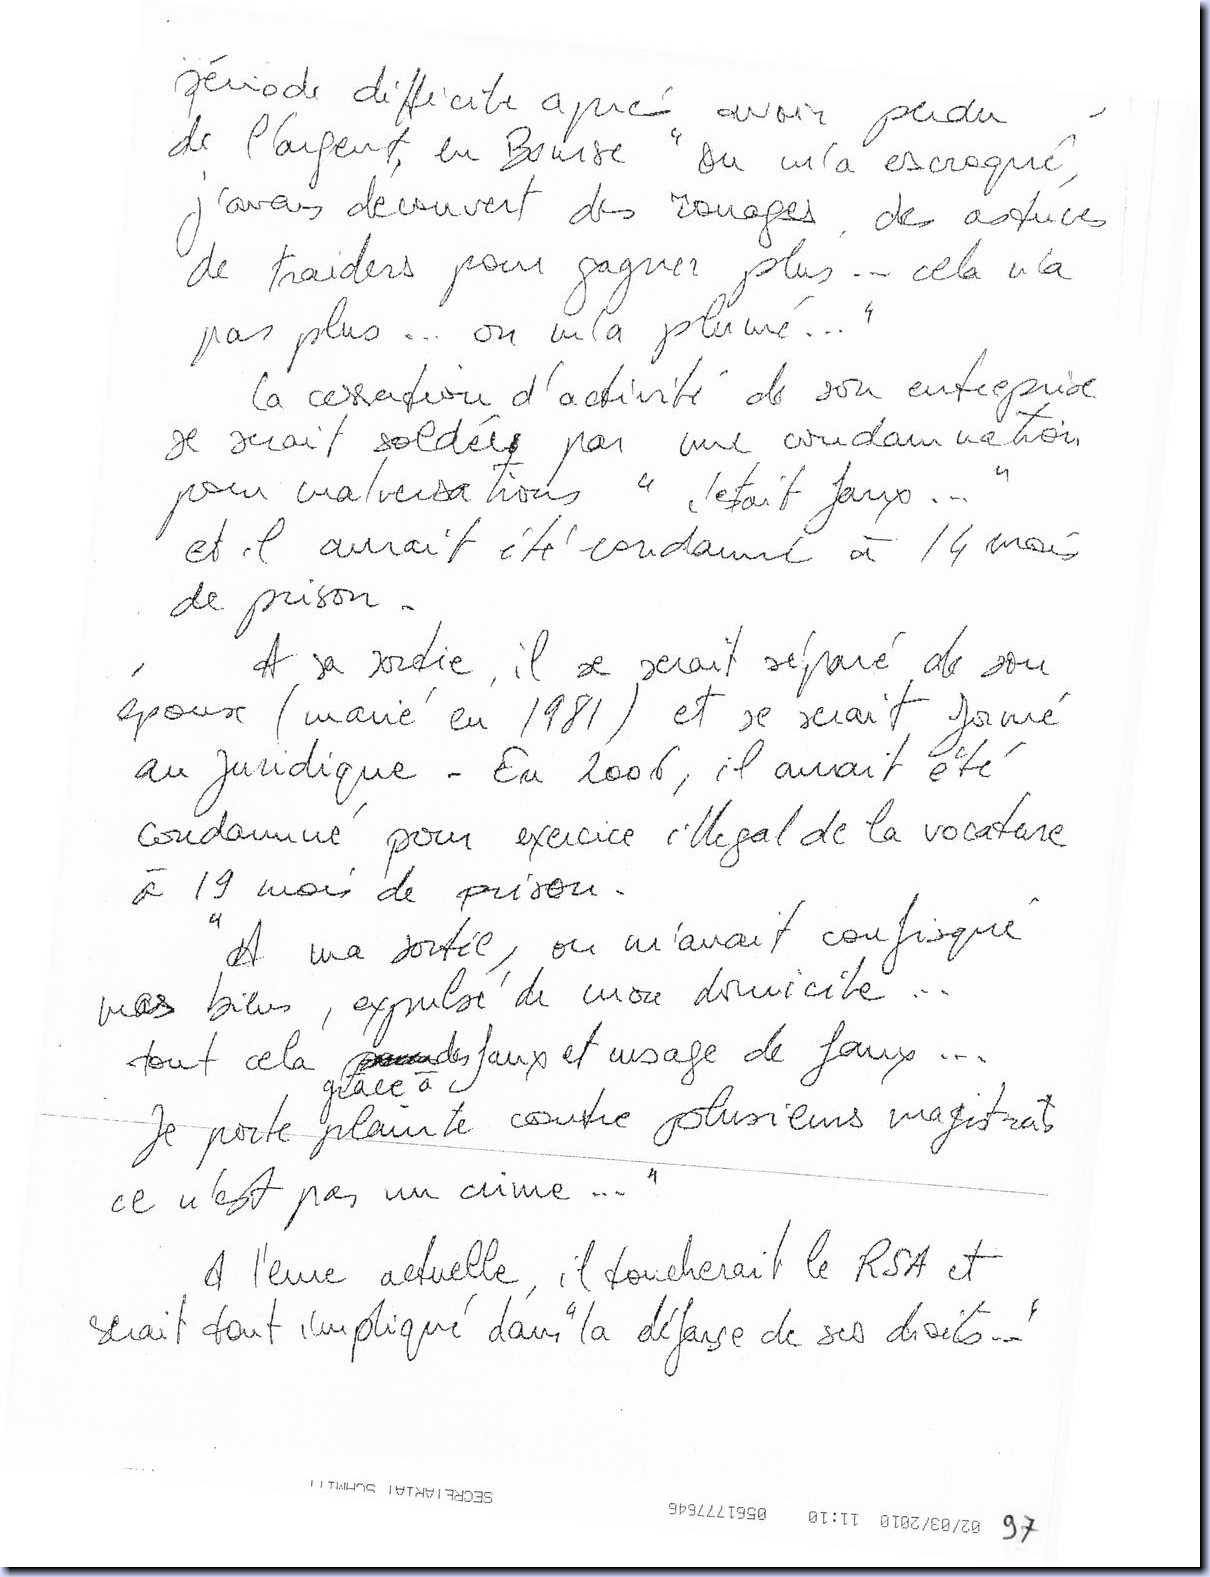 période difficile après avoir perdu
de l'argent, en Bourse "on m'a escroqué,
j'avais découvert des rouages, des astuces
de traiders pour gagner plus... cela n'a
pas plus... on m'a plumé..."
La cessation d'activité de son entreprise
se serait soldée par une condamnation
pour malversations "c'était faux..."
et il aurait été condamné à 14 mois
de prison.
A sa sortie, il se serait séparé de son
épouse (marié en 1981) et se serait formé
au Juridique - En 2006, il aurait été
condamné pour exercice illégal de la vocature
à 19 mois de prison.
"A ma sortie, on m'avait confisqué
mes biens, expulsé de mon domicile...
tout cela grâce à des faux et usage de faux...
Je porte plainte contre plusieurs magistrats
ce n'est pas un crime..."
A l'eure actuelle, il toucherait le RSA et
serait tout impliqué dans "la défense de ses droits..."
02/03/2010 11:10 0561777646 SECRETARIAT SCHMITT
97